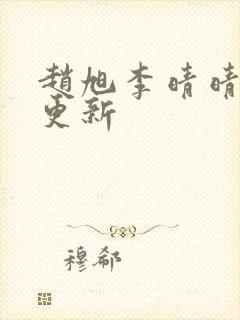 趙旭李晴晴
更新
穆郗